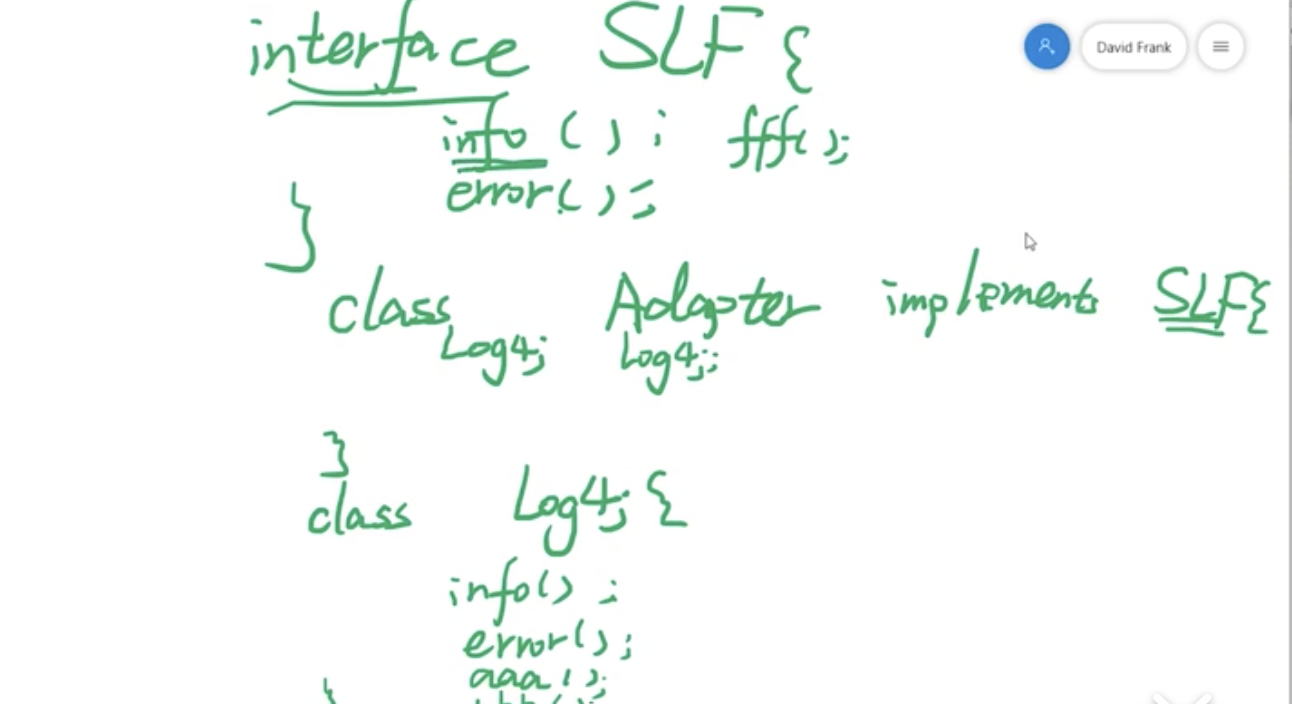 interface SLF {
David Frank
info ( ) ; fff( );
error( );
}
class Adapter implements SLF{
Log4j Log4j;
}
class Log4j {
info() ;
error();
aaa();
}